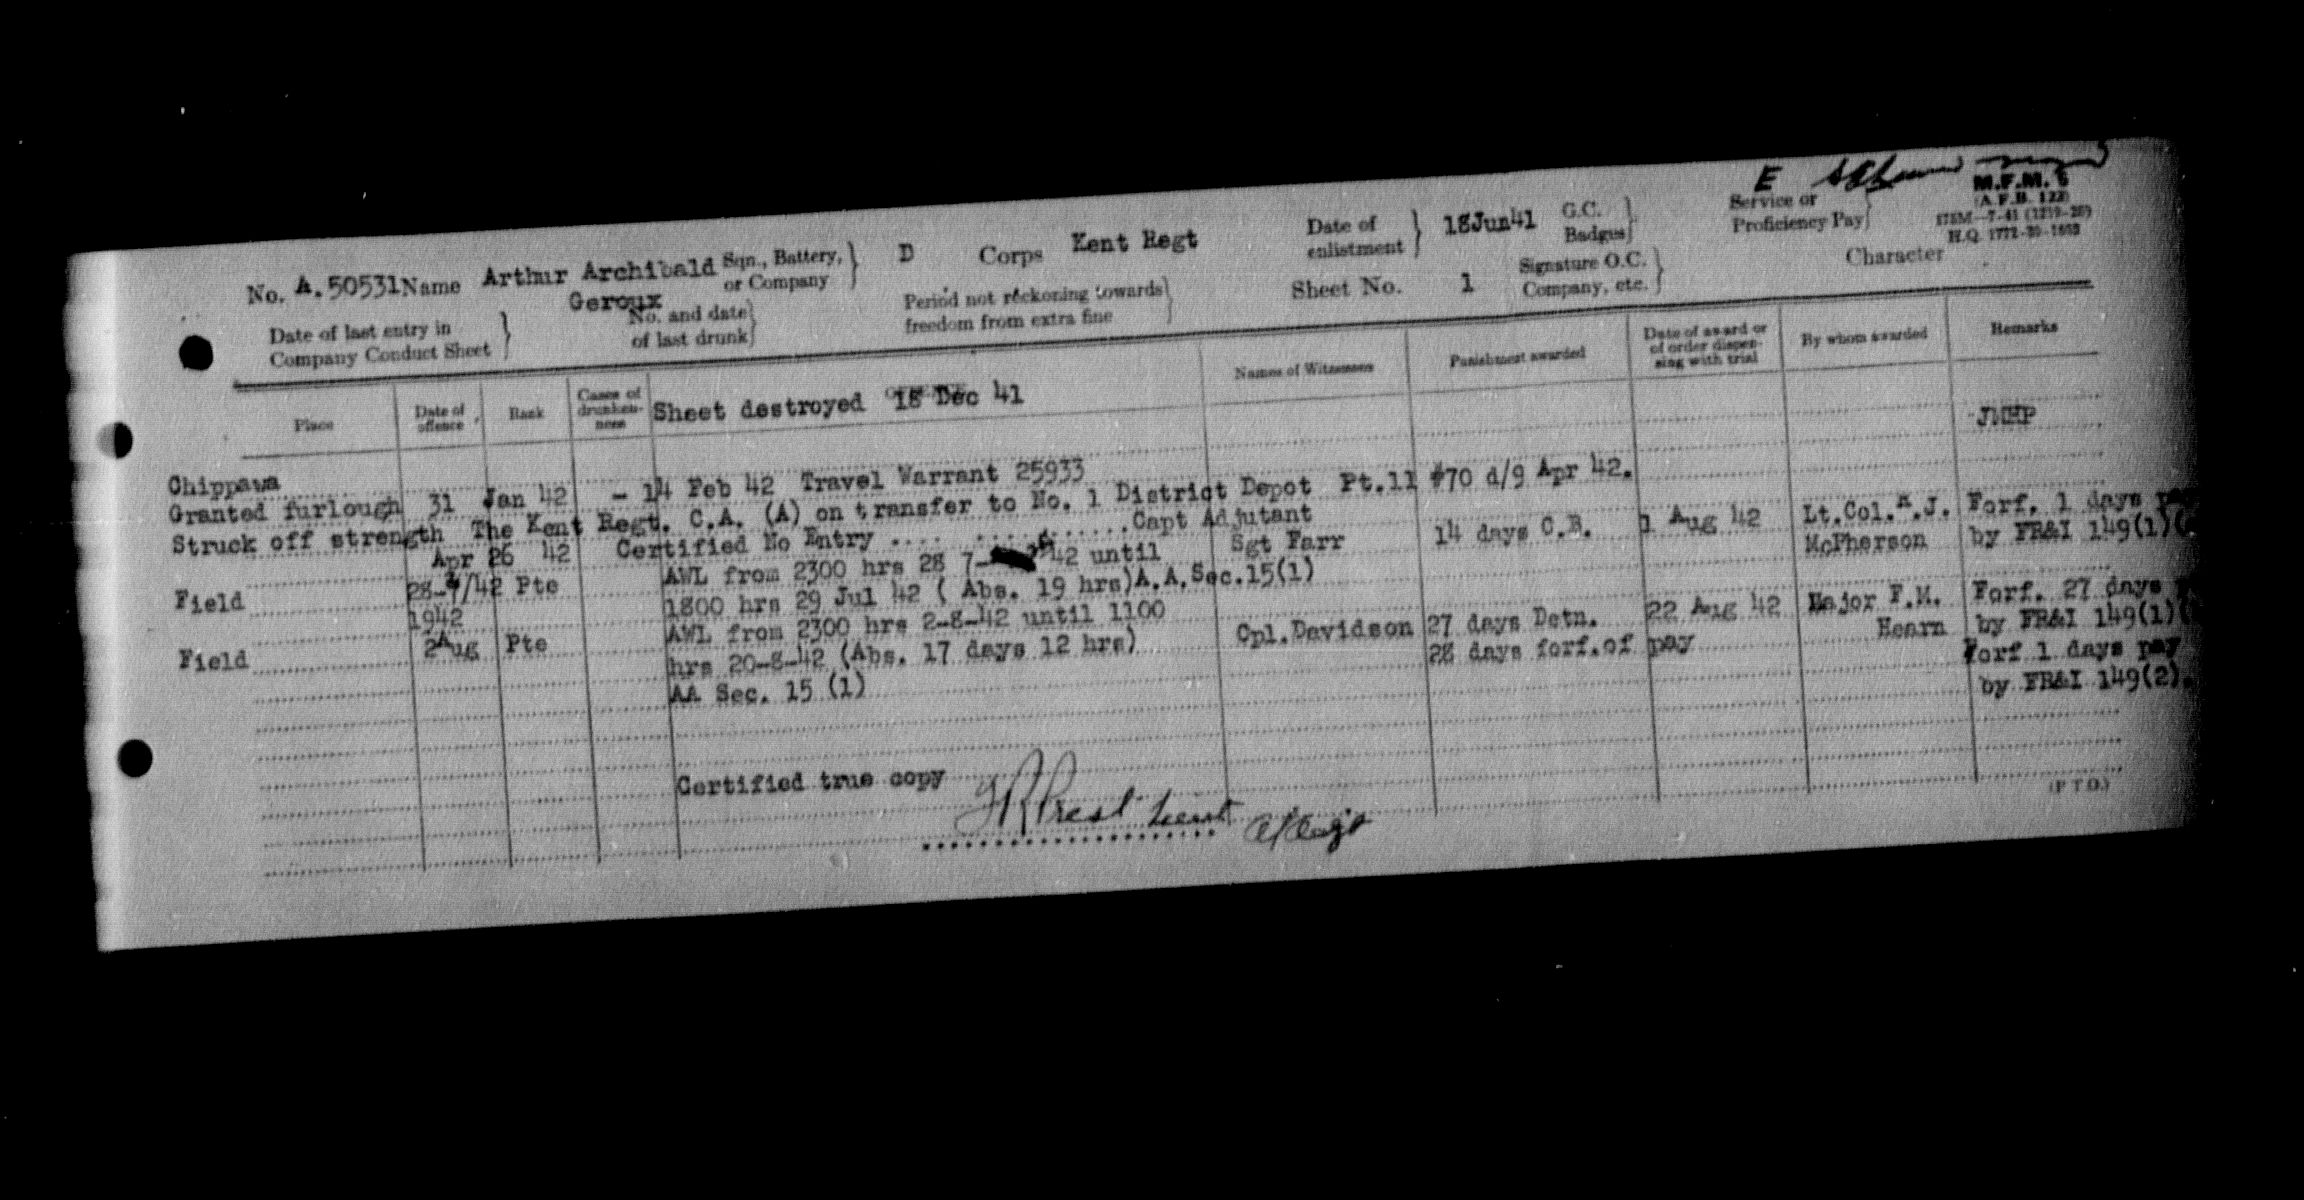 E
M.F.M. 6
(A.F.B. 122)
H.Q. 1772-39-1663
No. A.50531 Name Arthur Archibald Geroux Sqn., Battery, or Company } D Corps Kent Regt Date of enlistment } 18Jun41 G.C. Badges } Service or Proficiency Pay }
Date of last entry in Company Conduct Sheet } No. and date of last drunk } Period not reckoning towards freedom from extra fine } Sheet No. 1 Signature O.C. Company, etc. } Character
Place Date of offence Rank Cases of drunkenness OFFENCE Names of Witnesses Punishment awarded Date of award or of order dispensing with trial By whom awarded Remarks
Sheet destroyed 18 Dec 41
JMHP
Chippawa
Granted furlough 31 Jan 42 - 14 Feb 42 Travel Warrant 25933
Struck off strength The Kent Regt. C.A. (A) on transfer to No. 1 District Depot Pt.11 #70 d/9 Apr 42.
Apr 26 42 Certified No Entry .... ..........Capt Adjutant
Field 28-7/42 Pte AWL from 2300 hrs 28 7- 42 until Sgt Farr 14 days C.B. 1 Aug 42 Lt.Col.A.J. Forf. 1 days
1942 1800 hrs 29 Jul 42 ( Abs. 19 hrs)A.A.Sec.15(1) McPherson by FR&I 149(1)(
Field 2Aug Pte AWL from 2300 hrs 2-8-42 until 1100 Cpl.Davidson 27 days Detn. 22 Aug 42 Major F.M. Forf. 27 days
hrs 20-8-42 (Abs. 17 days 12 hrs) 28 days forf.of pay Hearn by FR&I 149(1)(
AA Sec. 15 (1) Forf 1 days pay
by FR&I 149(2).
Certified true copy
Lieut
A/Adjt
(P.T.O.)